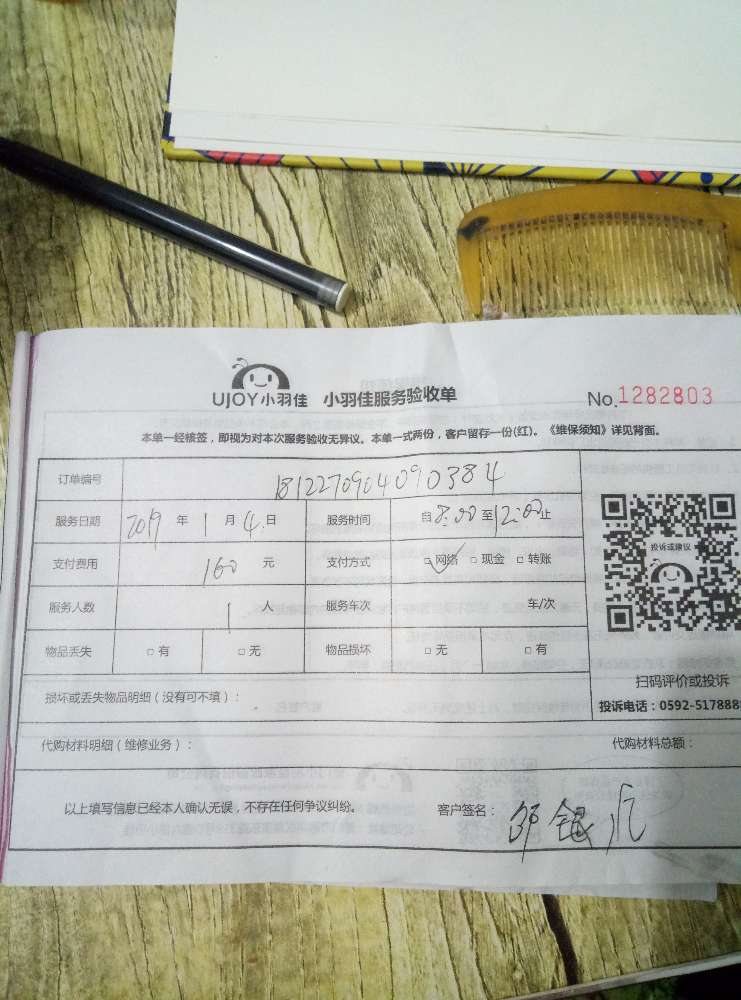 UJOY小羽佳 小羽佳服务验收单 No.1282803
本单一经核签，即视为对本次服务验收无异议。本单一式两份，客户留存一份(红)。《维保须知》详见背面。
订单编号 1812270904090384
服务日期 2019 年 1 月 4 日 服务时间 自8:00至12:00止
支付费用 160 元 支付方式 □网络 □现金 □转账
投诉或建议
服务人数 1 人 服务车次 车/次
物品丢失 □有 □无 物品损坏 □无 □有
扫码评价或投诉
损坏或丢失物品明细（没有可不填）：
投诉电话：0592-517888
代购材料明细（维修业务）： 代购材料总额：
以上填写信息已经本人确认无误，不存在任何争议纠纷。 客户签名： 邹银